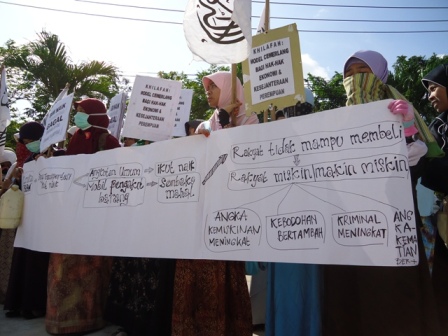 KHILAFAH:
MODEL CEMERLANG
BAGI HAK-HAK
EKONOMI &
KESEJAHTERAAN
PEREMPUAN
KHILAFAH:
MODEL CEMERLANG
BAGI HAK-HAK
EKONOMI &
KESEJAHTERAAN
PEREMPUAN
UNTUK
Angkutan Umum
Mobil Pengangkut
barang
ikut naik
Sembako
mahal
Rakyat tidak mampu membeli
Rakyat miskin makin miskin
ANGKA
KEMUKINAN
MENINGKAT
KEBODOHAN
BERTAMBAH
KRIMINAL
MENINGKAT
ANG
KA-
KEMA
TIAN
BER+